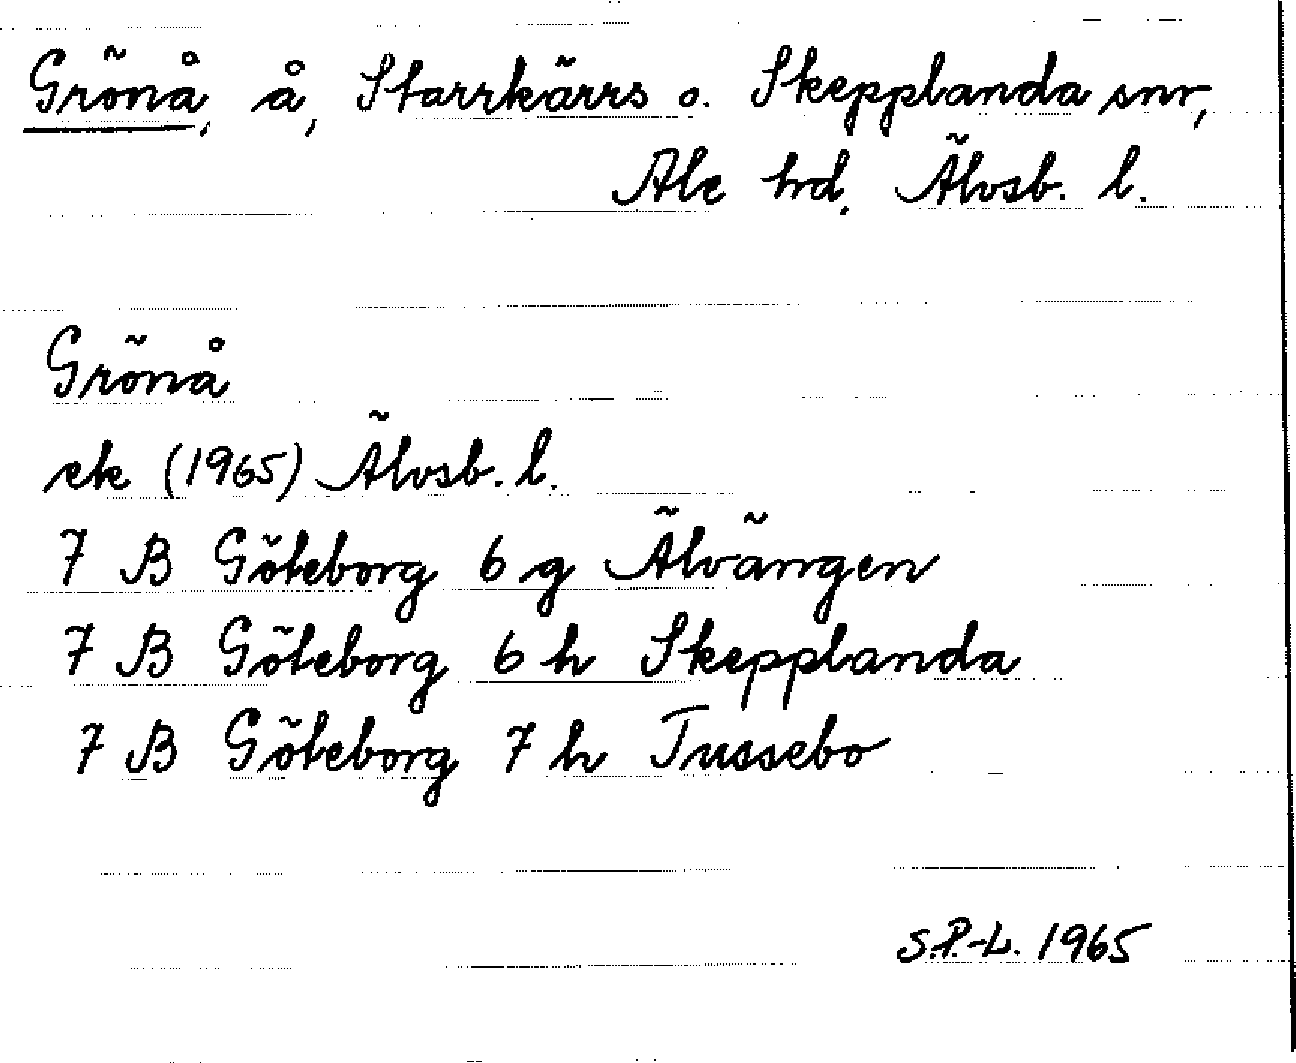 Grönå, å, Starrkärrs o. Skepplanda snr,
Ale hd. Älvsb. l.
Grönå
ek (1965) Älvsb. l.
7 B Göteborg 6 g Älvängen
7 B Göteborg 6 h Skepplanda
7 B Göteborg 7 h Tussebo
S.P.-L. 1965